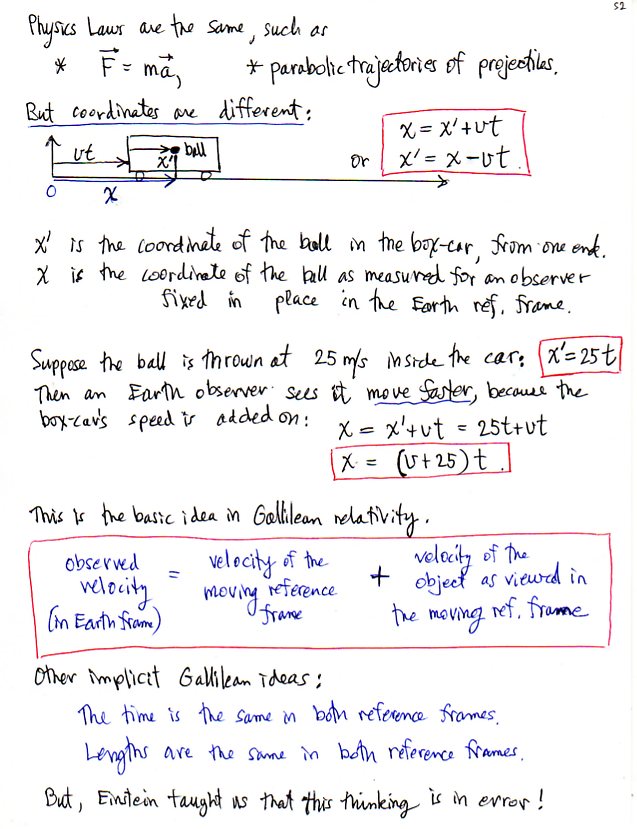 52
Physics Laws are the same, such as
* F⃗ = ma⃗, * parabolic trajectories of projectiles.
But coordinates are different:
vt x' ball
0 x
or
x = x' + vt
x' = x - vt.
x' is the coordinate of the ball in the box-car, from one end.
x is the coordinate of the ball as measured for an observer
fixed in place in the Earth ref. frame.
Suppose the ball is thrown at 25 m/s inside the car: x' = 25t
Then an Earth observer sees it move faster, because the
box-car's speed is added on: x = x' + vt = 25t + vt
x = (v + 25) t.
This is the basic idea in Gallilean relativity.
observed velocity (in Earth frame) = velocity of the moving reference frame + velocity of the object as viewed in the moving ref. frame
Other implicit Gallilean ideas:
The time is the same in both reference frames.
Lengths are the same in both reference frames.
But, Einstein taught us that this thinking is in error!